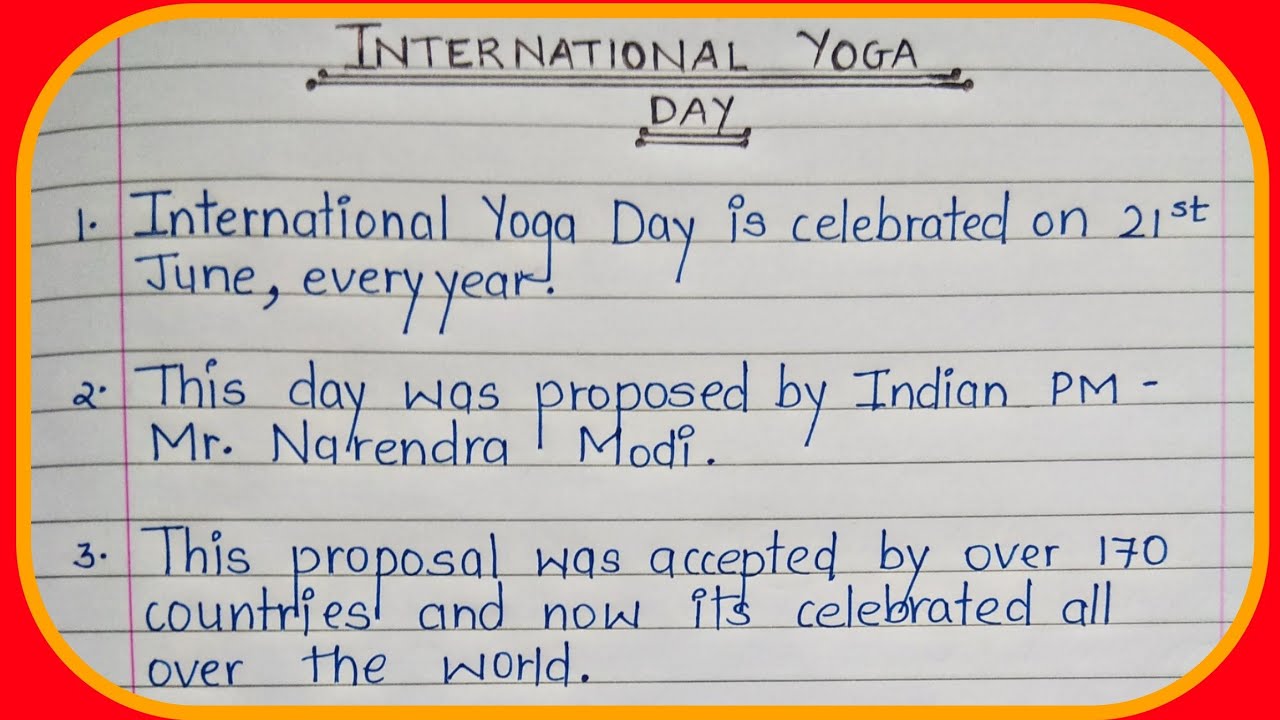 INTERNATIONAL YOGA
DAY
1. International Yoga Day is celebrated on 21st
June, every year.
2. This day was proposed by Indian PM -
Mr. Narendra Modi.
3. This proposal was accepted by over 170
countries and now its celebrated all
over the world.